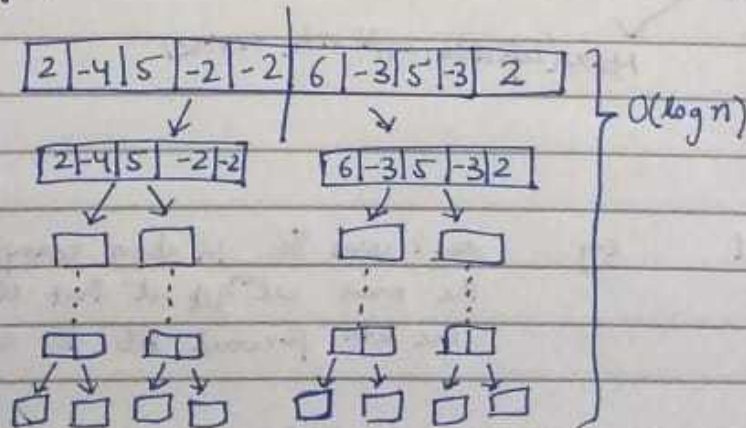 2 -4 5 -2 -2 6 -3 5 -3 2
O(log n)
2 -4 5 -2 -2 6 -3 5 -3 2